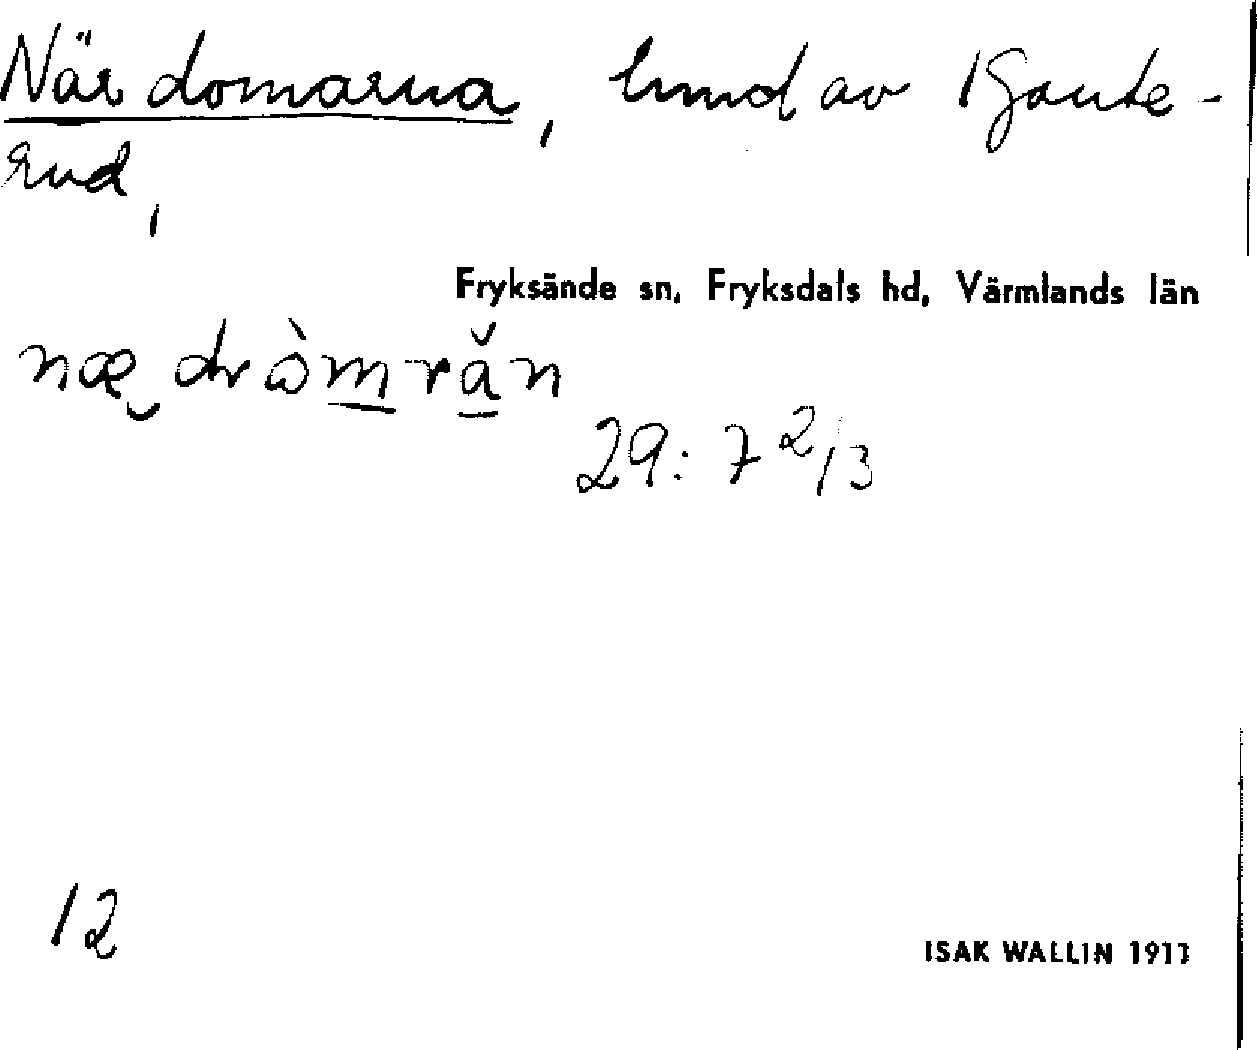 När domarna, hmd av 1 Gaute-
rud,
Fryksände sn, Fryksdals hd, Värmlands län
29: 7 2/3
12
ISAK WALLIN 1911